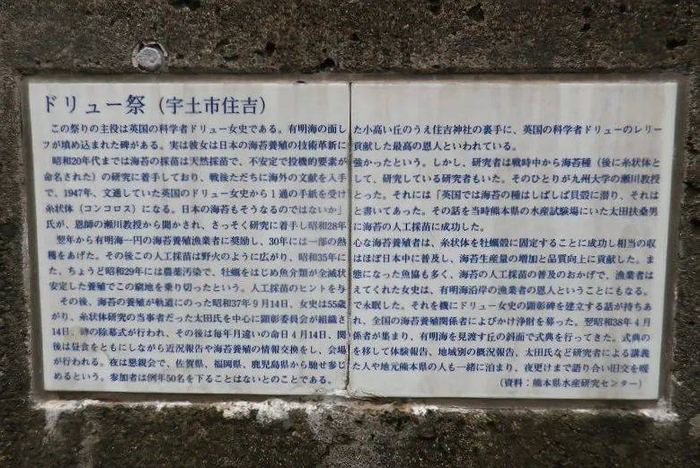 ドリュー祭（宇土市住吉）
この祭りの主役は英国の科学者ドリュー女史である。有明海の面した小高い丘のうえ住吉神社の裏手に、英国の科学者ドリューのレリー
フが埋め込まれた碑がある。実は彼女は日本の海苔養殖の技術革新に貢献した最高の恩人といわれている。
昭和20年代までは海苔の採苗は天然採苗で、不安定で投機的要素が強かったという。しかし、研究者は戦時中から海苔種（後に糸状体と
命名された）の研究に着手しており、戦後ただちに海外の文献を入手して、研究している研究者もいた。そのひとりが九州大学の瀬川教授
で、1947年、文通していた英国のドリュー女史から１通の手紙を受けとった。それには「英国では海苔の種はしばしば貝殻に潜り、それは
糸状体（コンコロス）になる。日本の海苔もそうなるのではないか」と書いてあった。その話を当時熊本県の水産試験場にいた太田扶桑男
氏が、恩師の瀬川教授から聞かされ、さっそく研究に着手し昭和28年に海苔の人工採苗に成功した。
翌年から有明海一円の海苔養殖漁業者に奨励し、30年には一部の熱心な海苔養殖者は、糸状体を牡蠣殻に固定することに成功し相当の収
穫をあげた。その後この人工採苗は野火のように広がり、昭和35年にはほぼ日本中に普及し、海苔生産量の増加と品質向上に貢献した。ま
た、ちょうど昭和29年には農薬汚染で、牡蠣をはじめ魚介類が全滅状態になった魚協も多く、海苔の人工採苗の普及のおかげで、漁業者は
安定した養殖でこの窮地を乗り切ったという。人工採苗のヒントを与えてくれた女史は、有明海沿岸の漁業者の恩人ということにもなる。
その後、海苔の養殖が軌道にのった昭和37年９月14日、女史は55歳で永眠した。それを機にドリュー女史の顕彰碑を建立する話が持ちあ
がり、糸状体研究の当事者だった太田氏を中心に顕彰委員会が組織され、全国の海苔養殖関係者によびかけ浄財を募った。翌昭和38年４月
14日、碑の除幕式が行われ、その後は毎年月違いの命日４月14日、関係者が集まり、有明海を見渡す丘の斜面で式典を行ってきた。式典の
後は昼食をともにしながら近況報告や海苔養殖の情報交換をし、会場を移して体験報告、地域別の概況報告、太田氏など研究者による講義
が行われる。夜は懇親会で、佐賀県、福岡県、鹿児島県から馳せ参じた人や地元熊本県の人も一緒に泊まり、夜更けまで語り合い旧交を暖
めるという。参加者は例年50名を下ることはないとのことである。
（資料：熊本県水産研究センター）